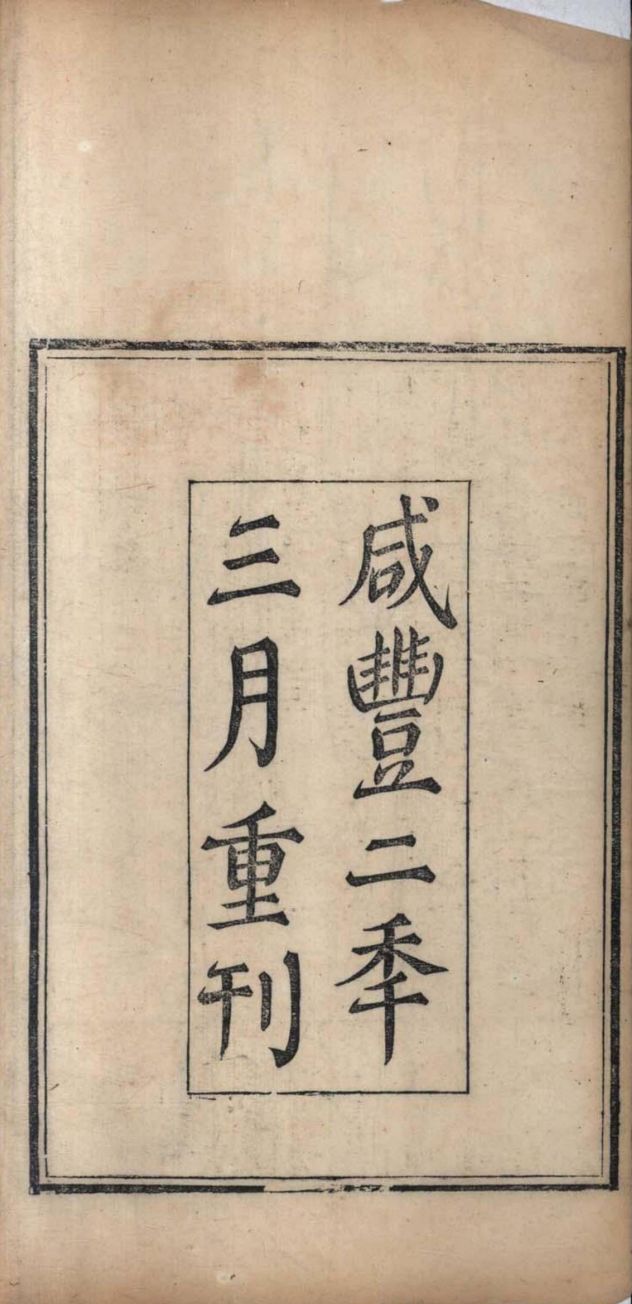 咸豐二秊
三月重刊